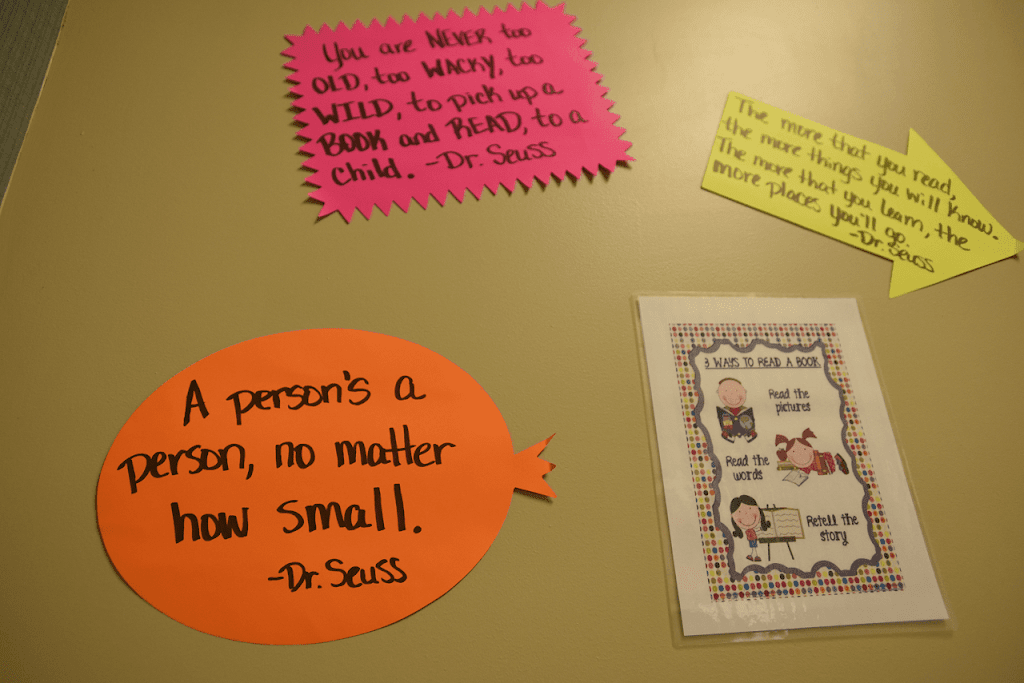 You are NEVER too
OLD, too WACKY, too
WILD, to pick up a
BOOK and READ, to a
child. -Dr. Seuss
The more that you read,
the more things you will know.
The more that you learn, the
more places you'll go.
-Dr. Seuss
A person's a
person, no matter
how small.
-Dr. Seuss
3 WAYS TO READ A BOOK
Read the
pictures
Read the
words
Retell the
story